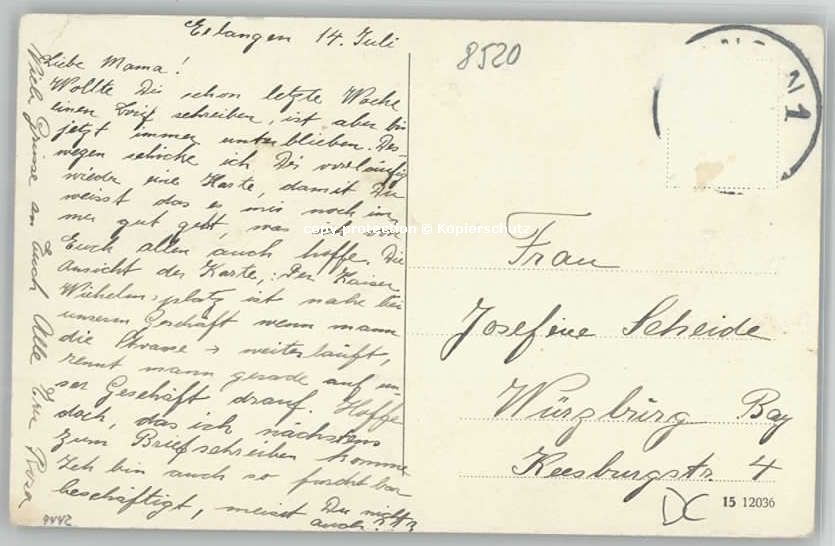 Erlangen 14. Juli
Liebe Mama!
Wollte Dir schon letzte Woche
einen Brief schreiben, ist aber bis
jetzt immer unterblieben. Des-
wegen schicke ich Dir vorläufig
wieder eine Karte, damit Du
weisst das es mir noch im-
mer gut geht, was ich von
Euch allen auch hoffe. Die
Ansicht der Karte, Der Kaiser
Wilhelmsplatz ist nahe bei
unserm Geschäft wenn mann
die Strasse → weiterläuft,
rennt mann gerade auf un-
ser Geschäft drauf. Hoffe
doch, das ich nächstens
zum Briefschreiben komme
Ich bin auch so furchtbar
beschäftigt, meinst Du nicht
auch?
Viele Grüsse an Euch Alle Eure Rosa
8520
N 1
copy protection © Kopierschutz
Frau
Josefine Scheide
Würzburg Bay
Keesburgstr. 4
DC
15 12036